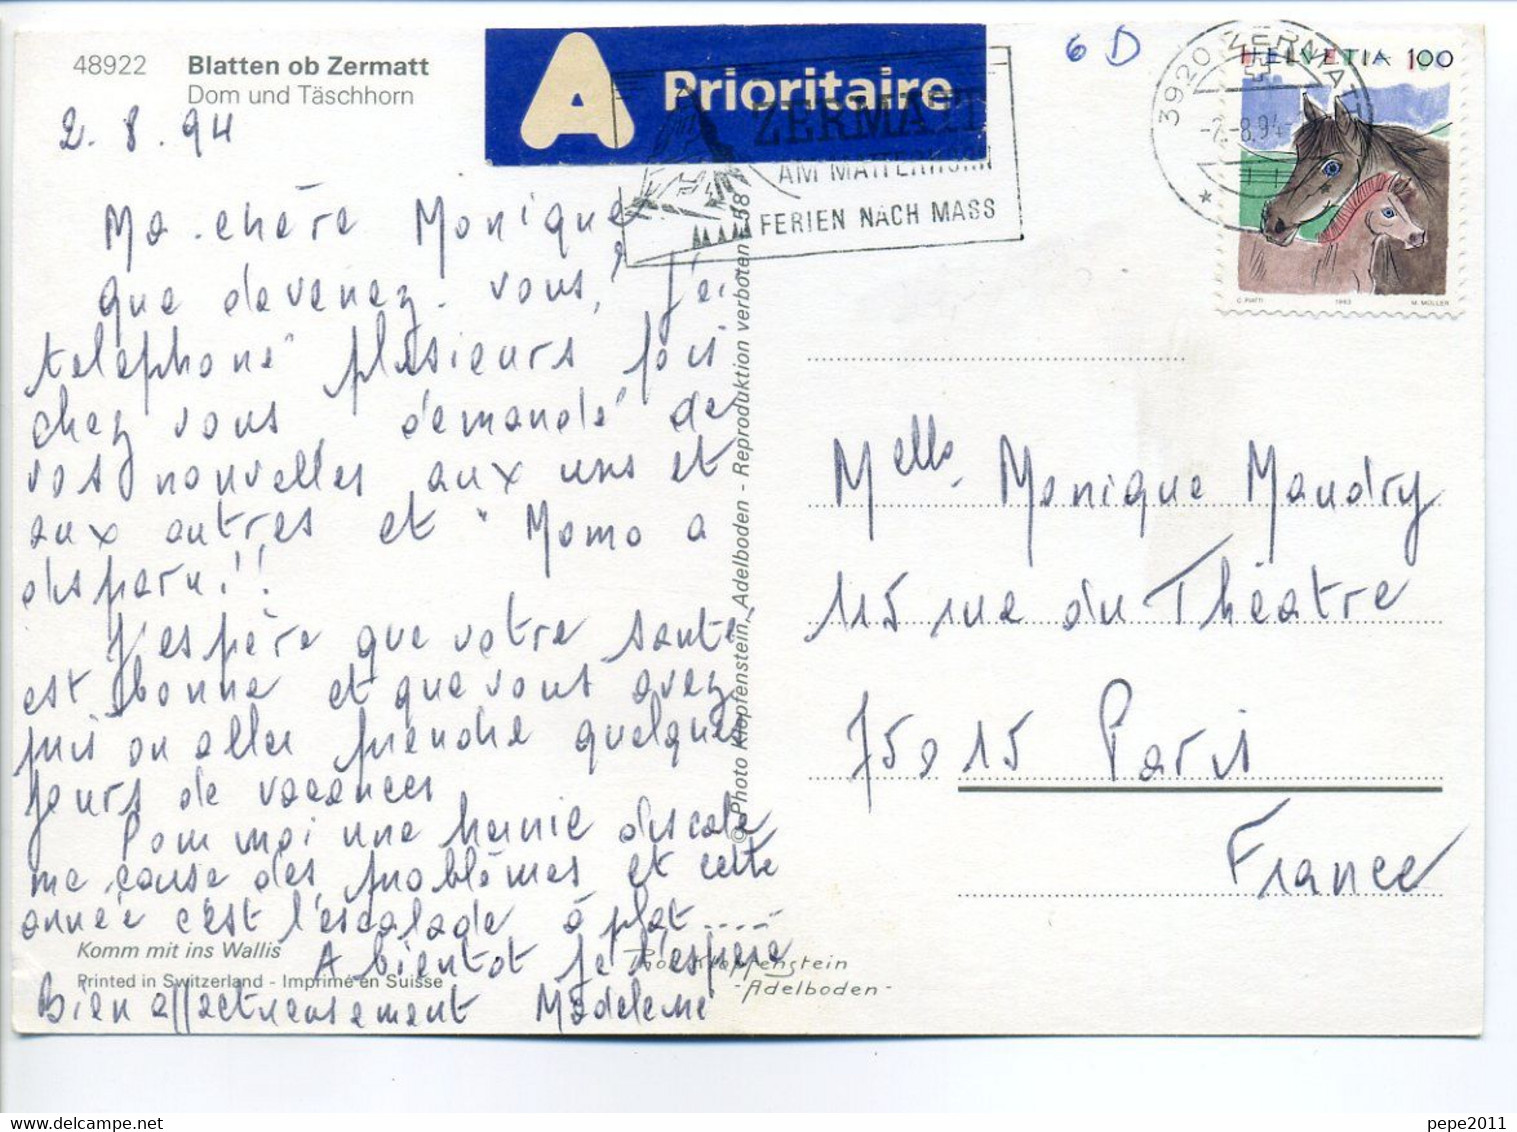 48922 Blatten ob Zermatt
Dom und Täschhorn
2.8.94
Ma chère Monique
que devenez-vous, j'ai
téléphoné plusieurs fois
chez vous demandé de
vos nouvelles aux uns et
aux autres et "Momo a
disparu!!
J'espère que votre santé
est bonne et que vous avez
puis ou aller prendre quelques
jours de vacances
Pour moi une hernie discale
me cause des problèmes et cette
année c'est l'escalade à plat....
A bientôt je l'espère
Bien affectueusement Madeleine
Komm mit ins Wallis
Printed in Switzerland - Imprimé en Suisse
© Photo Klopfenstein, Adelboden - Reproduktion verboten
Photo Klopfenstein
-Adelboden-
A Prioritaire
ZERMATT
AM MATTERHORN
FERIEN NACH MASS
58
6 D
3920 ZERMATT
-2.-8.94
HELVETIA 100
C. PIATTI 1993 M. MÜLLER
Melle Monique Maudry
115 rue du Théatre
75015 Paris
France
pepe2011